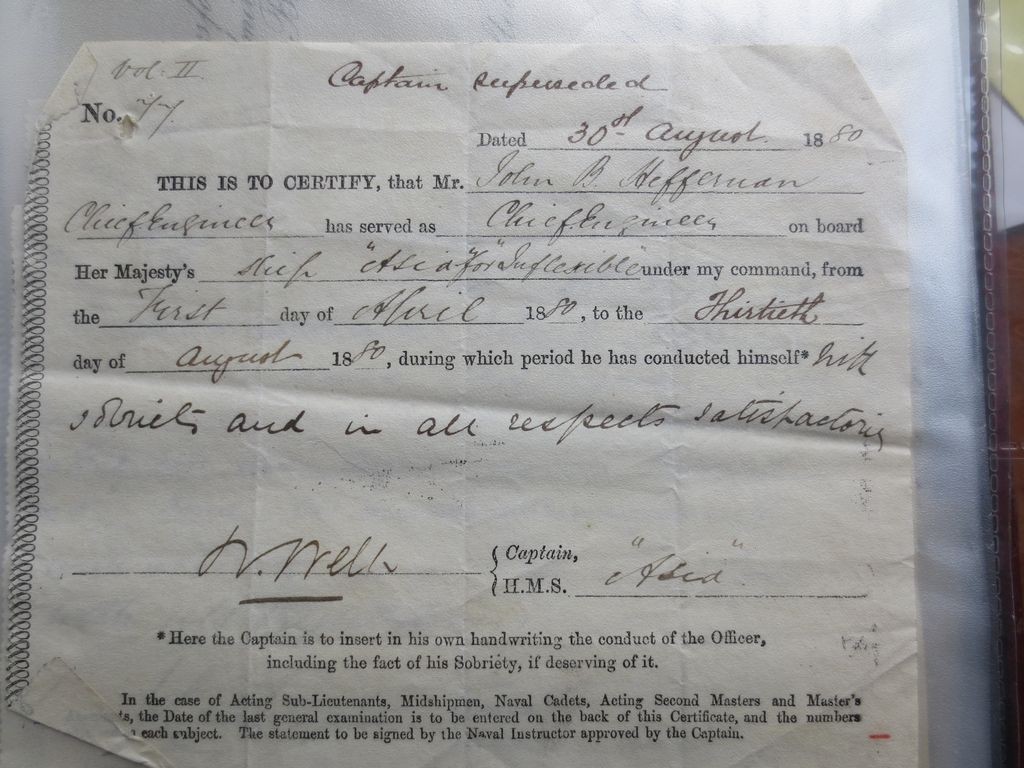 Vol. II
Captain superseded
No. 77.
Dated 30st August. 1880
THIS IS TO CERTIFY, that Mr. John B. Heffernan
Chief Engineer has served as Chief Engineer on board
Her Majesty's ship "Asia" for "Inflexible" under my command, from
the First day of April 1880, to the Thirtieth
day of August 1880, during which period he has conducted himself* with
sobriety and in all respects satisfactorily
W. Wells { Captain,
H.M.S. "Asia"
* Here the Captain is to insert in his own handwriting the conduct of the Officer,
including the fact of his Sobriety, if deserving of it.
In the case of Acting Sub-Lieutenants, Midshipmen, Naval Cadets, Acting Second Masters and Master's
the Date of the last general examination is to be entered on the back of this Certificate, and the numbers
each subject. The statement to be signed by the Naval Instructor approved by the Captain.